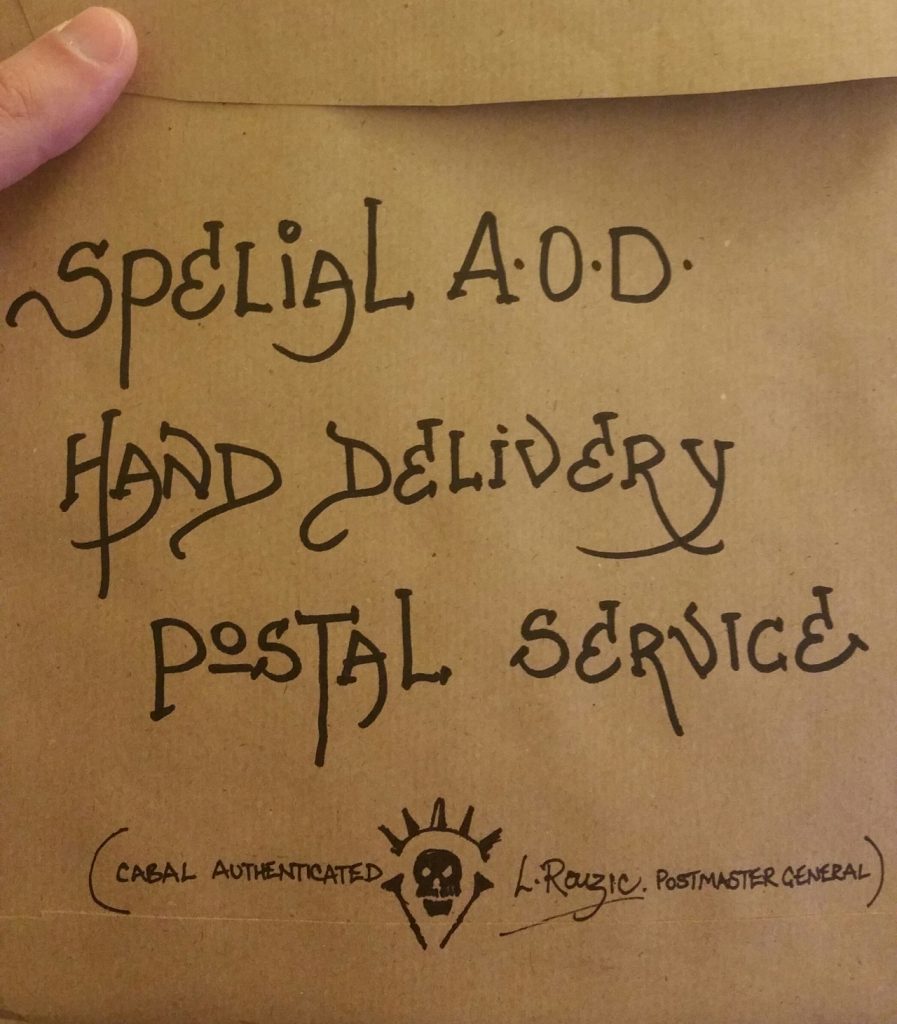 SPELIAL A.O.D.
HAND DELIVERY
POSTAL SERVICE
(CABAL AUTHENTICATED L. Rouzic. POSTMASTER GENERAL)